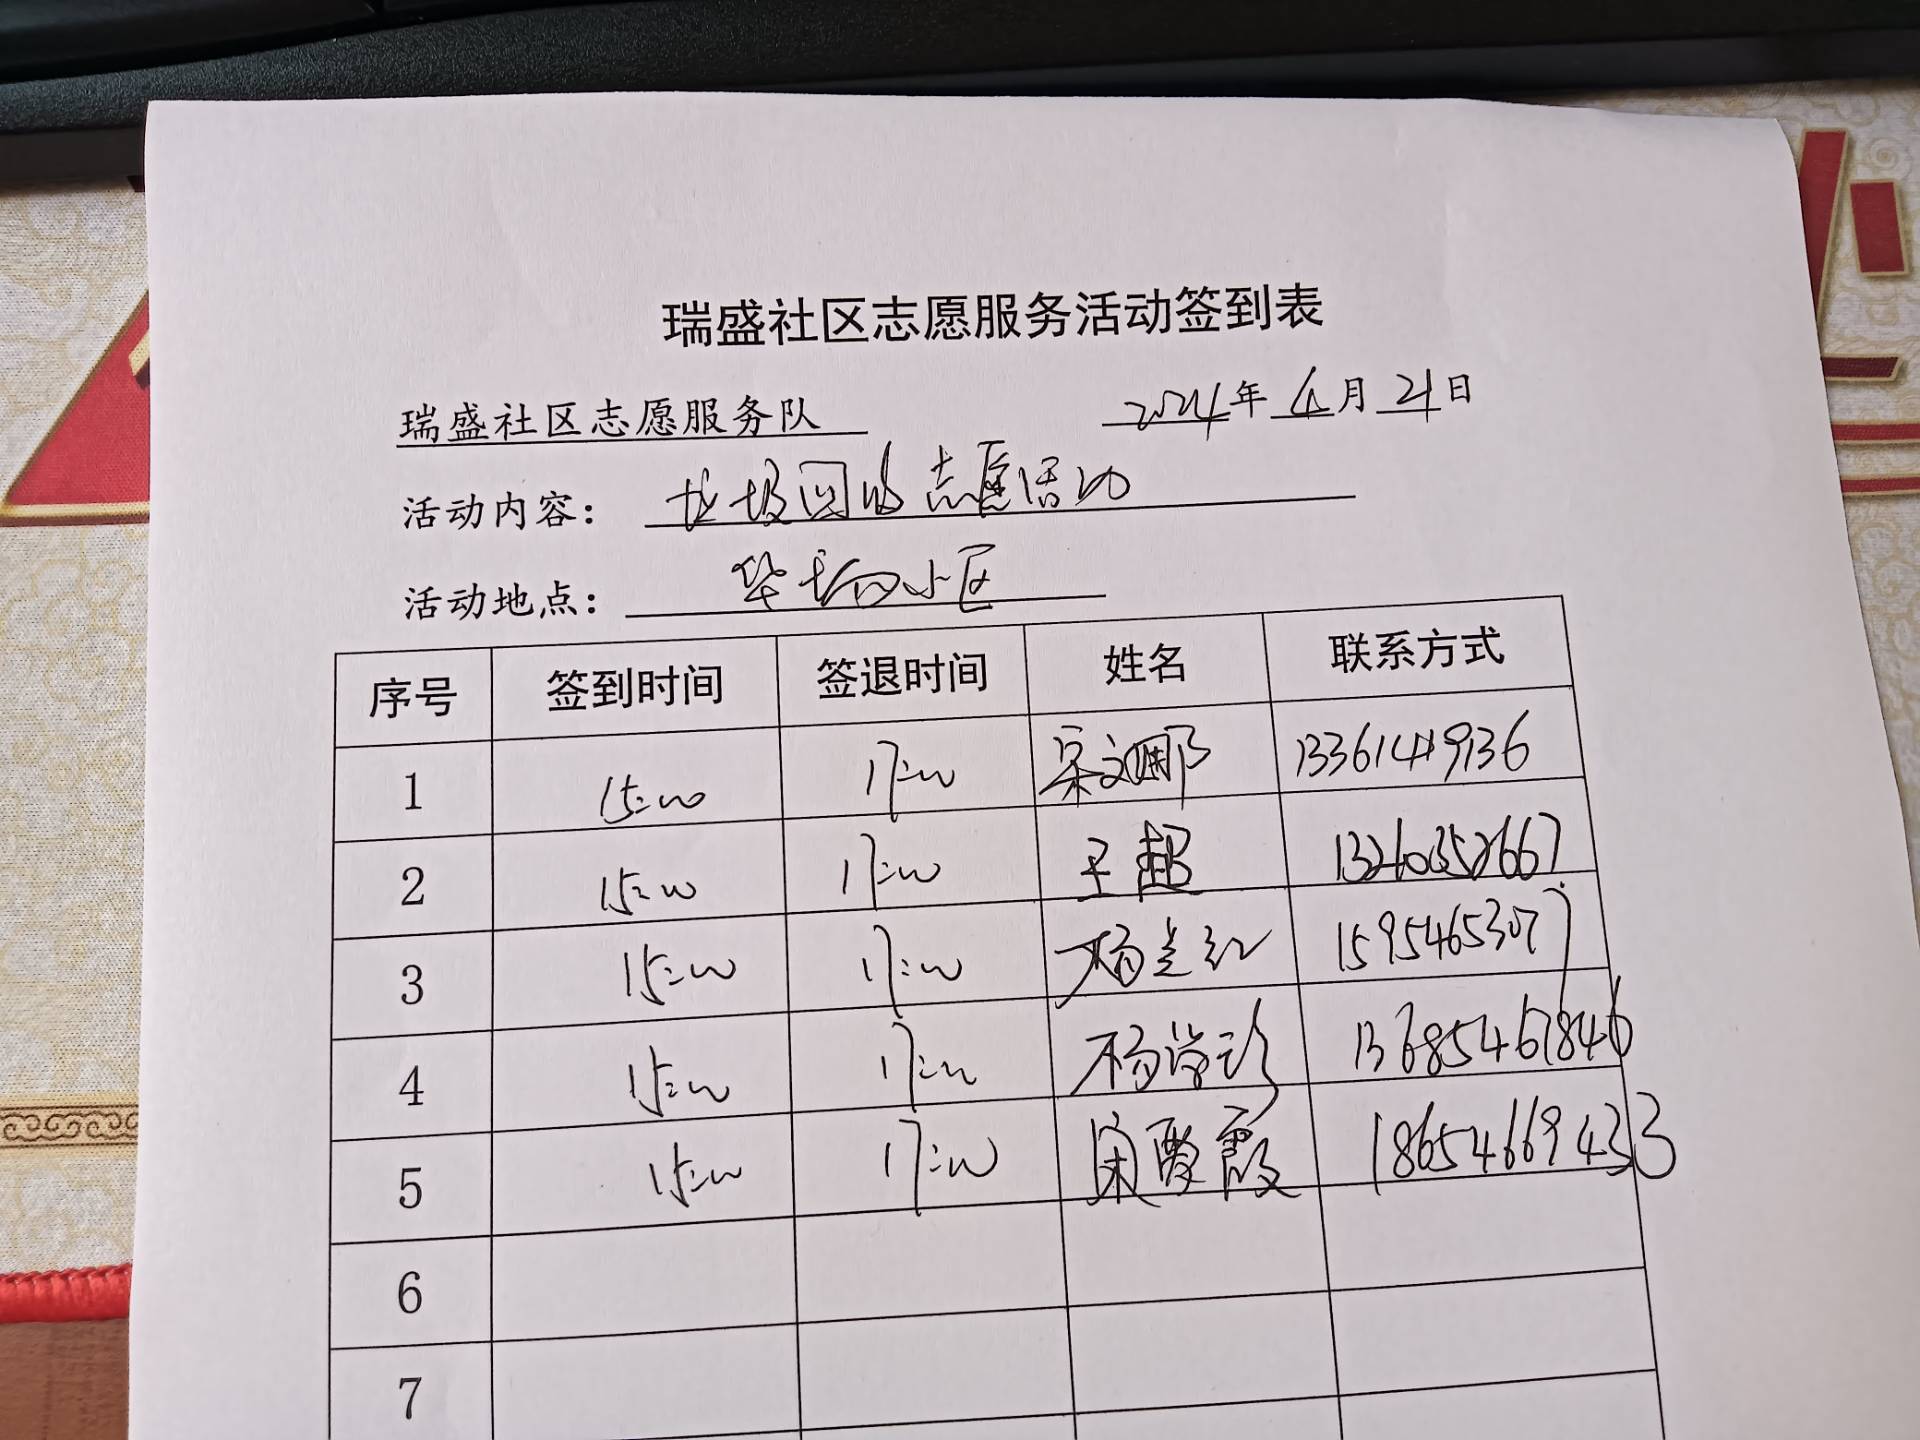 瑞盛社区志愿服务活动签到表
瑞盛社区志愿服务队 2024年4月21日
活动内容： 垃圾回收志愿活动
活动地点： 小区
序号 签到时间 签退时间 姓名 联系方式
1 15:00 17:00 宋文娜 13361449136
2 15:00 17:00 王超
3 15:00 17:00 杨 红 15954653077
4 15:00 17:00 杨 13685467846
5 15:00 17:00 霞 18654669433
6
7